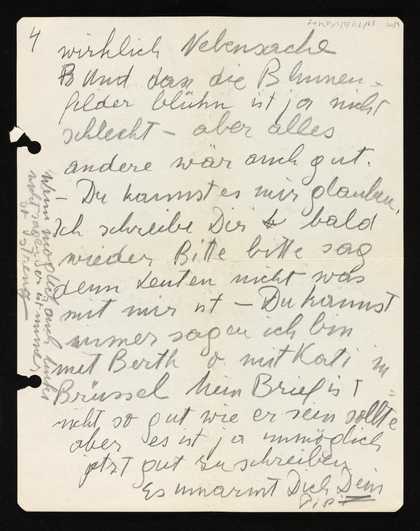 4
wirklich Nebensache
Und dass die Blumen-
felder blühn ist ja nicht
schlecht – aber alles
andere wär auch gut.
– Du kannst es mir glauben.
Ich schreibe Dir bald
wieder Bitte bitte sag
denn Leuten nicht was
mit mir ist – Du kannst
immer sagen ich bin
mit Berth o mit Kati in
Brüssel Mein Brief ist
nicht so gut wie er sein sollte
aber es ist ja unmöglich
jetzt gut zu schreiben
Es umarmt Dich Dein
Wenn möglich auch
immer